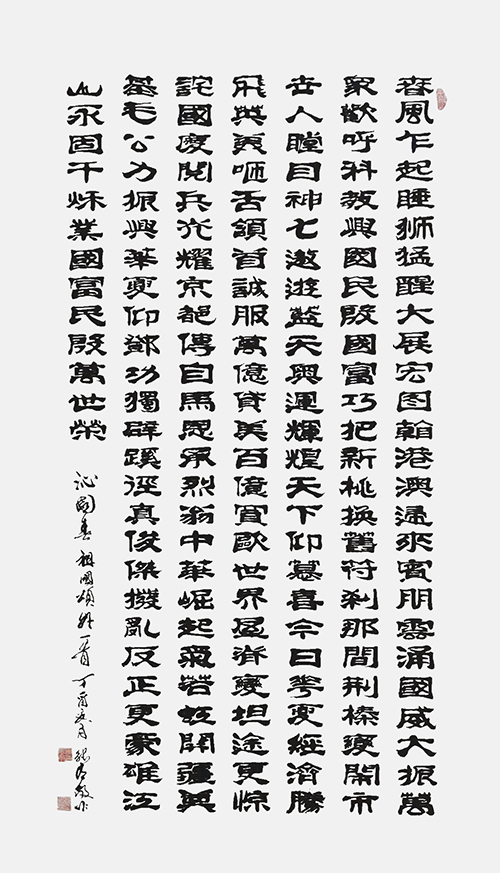 春風乍起睡狮猛醒大展宏图港澳通來賓朋雲涌國威大振萬
眾歡呼科教興國民殷國富巧把新桃換舊符刹那間荆榛變閙市
世人瞠目神七遨遊藍天奧運輝煌天下仰慕喜今日華夏經濟騰
飛英美咂舌頷首誠服萬億貸美百億買歐世界屋脊變坦途更惊
詫國慶閱兵光耀京都傳自馬恩承烈翁中華崛起氣若虹開疆奠
基毛公力振興華夏仰鄧功獨辟蹊徑真俊傑撥亂反正更豪雄江
山永固千秌業國富民殷萬世榮
沁園春祖國頌一首丁酉月敬作